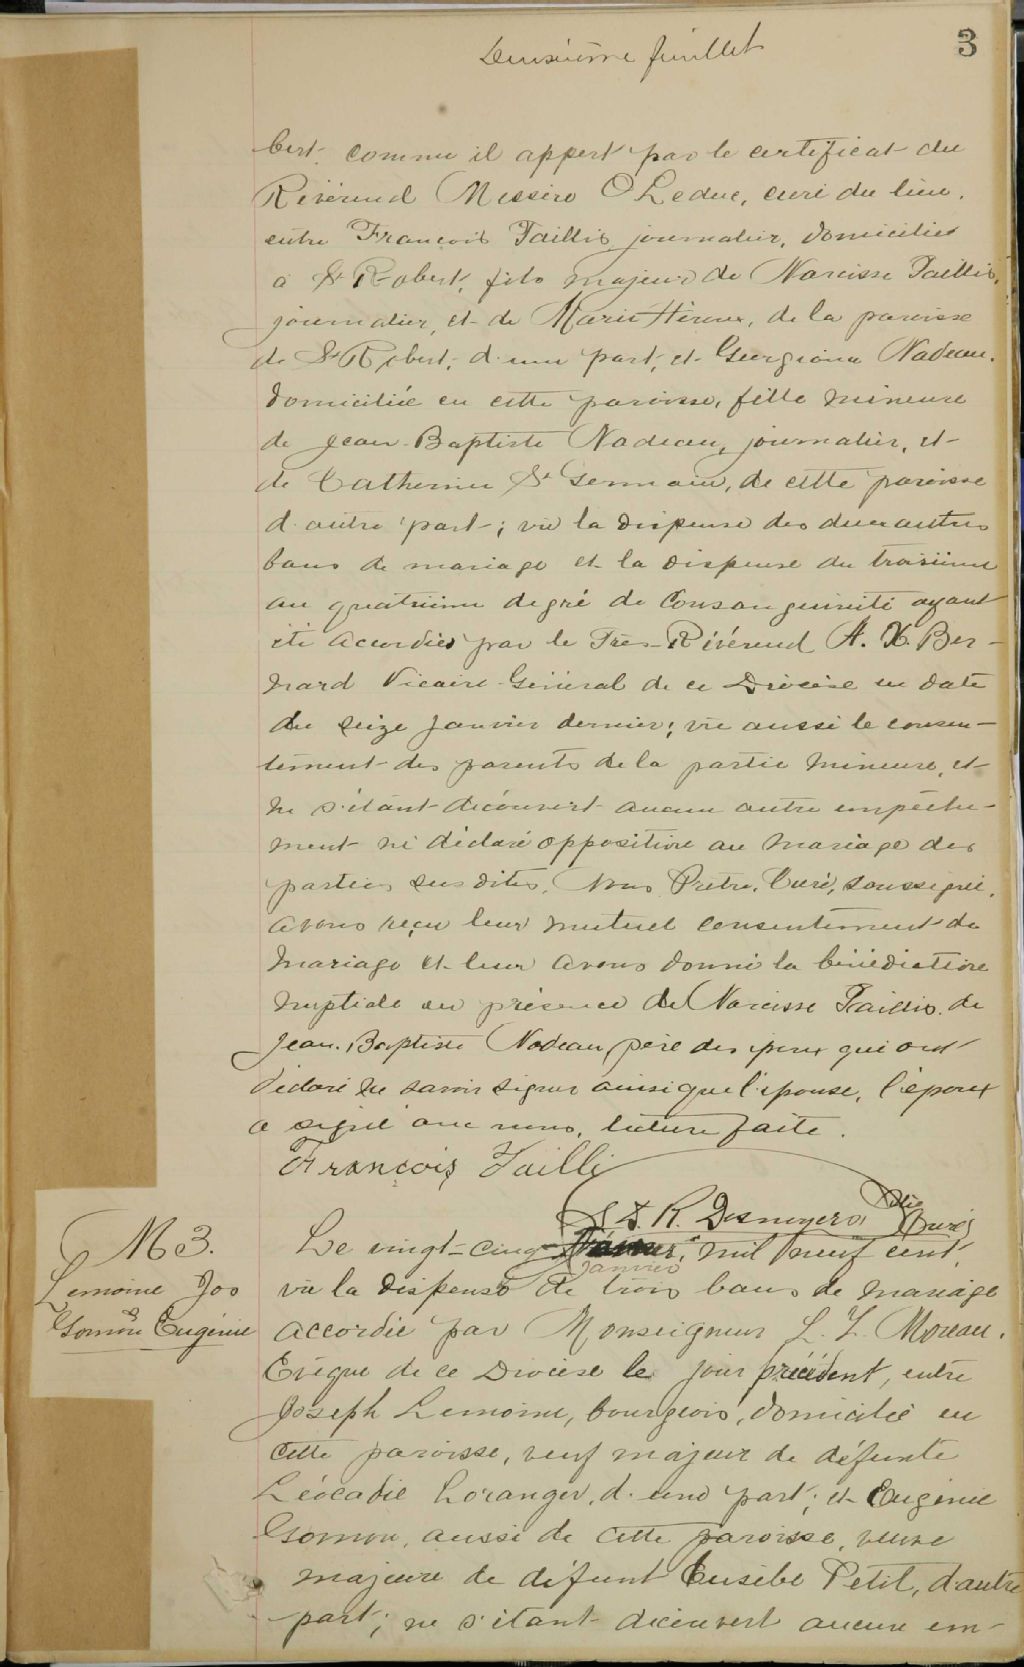 Deuxième feuillet
3
bert. comme il appert par le certificat du
Révérend Messire O Leduc, curé du lieu,
entre François Taillis journalier, domicilié
à St Robert, fils majeur de Narcisse Taillis,
journalier, et de Marie Héroux, de la paroisse
de St Robert, d'une part, et Georgiana Nadeau,
domiciliée en cette paroisse, fille mineure
de Jean-Baptiste Nadeau, journalier, et
de Catherine St Germain, de cette paroisse
d'autre part; vu la dispense des deux autres
bans de mariage et la dispense du troisième
au quatrième degré de Consanguinité ayant
été accordées par le Très-Révérend A. X. Ber-
nard Vicaire-Général de ce Diocèse en date
du seize janvier dernier; vu aussi le consen-
tement des parents de la partie mineure, et
ne s'étant découvert aucun autre empêche-
ment ni déclaré opposition au mariage des
parties susdites, Nous Prêtre, Curé, soussigné,
avons reçu leur mutuel consentement de
mariage et leur avons donné la bénédiction
nuptiale en présence de Narcisse Taillis, de
Jean-Baptiste Nadeau, père des époux qui ont
déclaré ne savoir signer ainsi que l'épouse, l'époux
a signé avec nous, lecture faite.
François Tailli
Desnoyers Ptre
Curé
M 3.
Lemoine Jos
&
Gomon Eugénie
Le vingt-cinq mil neuf cent,
janvier
vu la dispense de trois bans de mariage
accordée par Monseigneur L. Z. Moreau,
Evêque de ce Diocèse le jour précédent, entre
Joseph Lemoine, bourgeois, domicilié en
cette paroisse, veuf majeur de défunte
Léocadie Loranger, d'une part; et Eugénie
Gomon, aussi de cette paroisse, veuve
majeure de défunt Eusèbe Petit, d'autre
part; ne s'étant découvert aucun em-